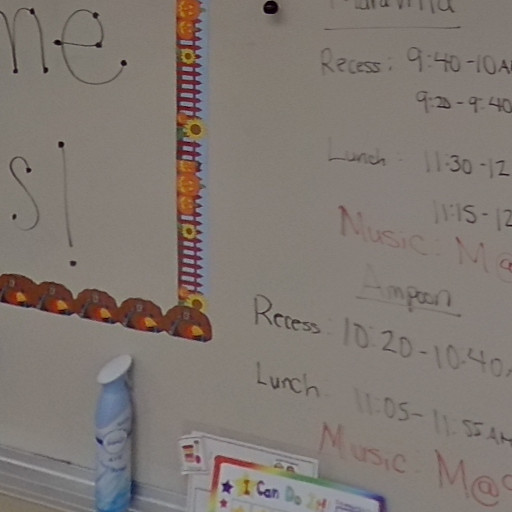 me
s!
Recess: 9:40-10A
9:20-9:40
Lunch: 11:30-12
11:15-12
Music: M@
Ampoon
Recess: 10:20-10:40
Lunch: 11:05-11:55AM
Music: M@9
I Can Do It!